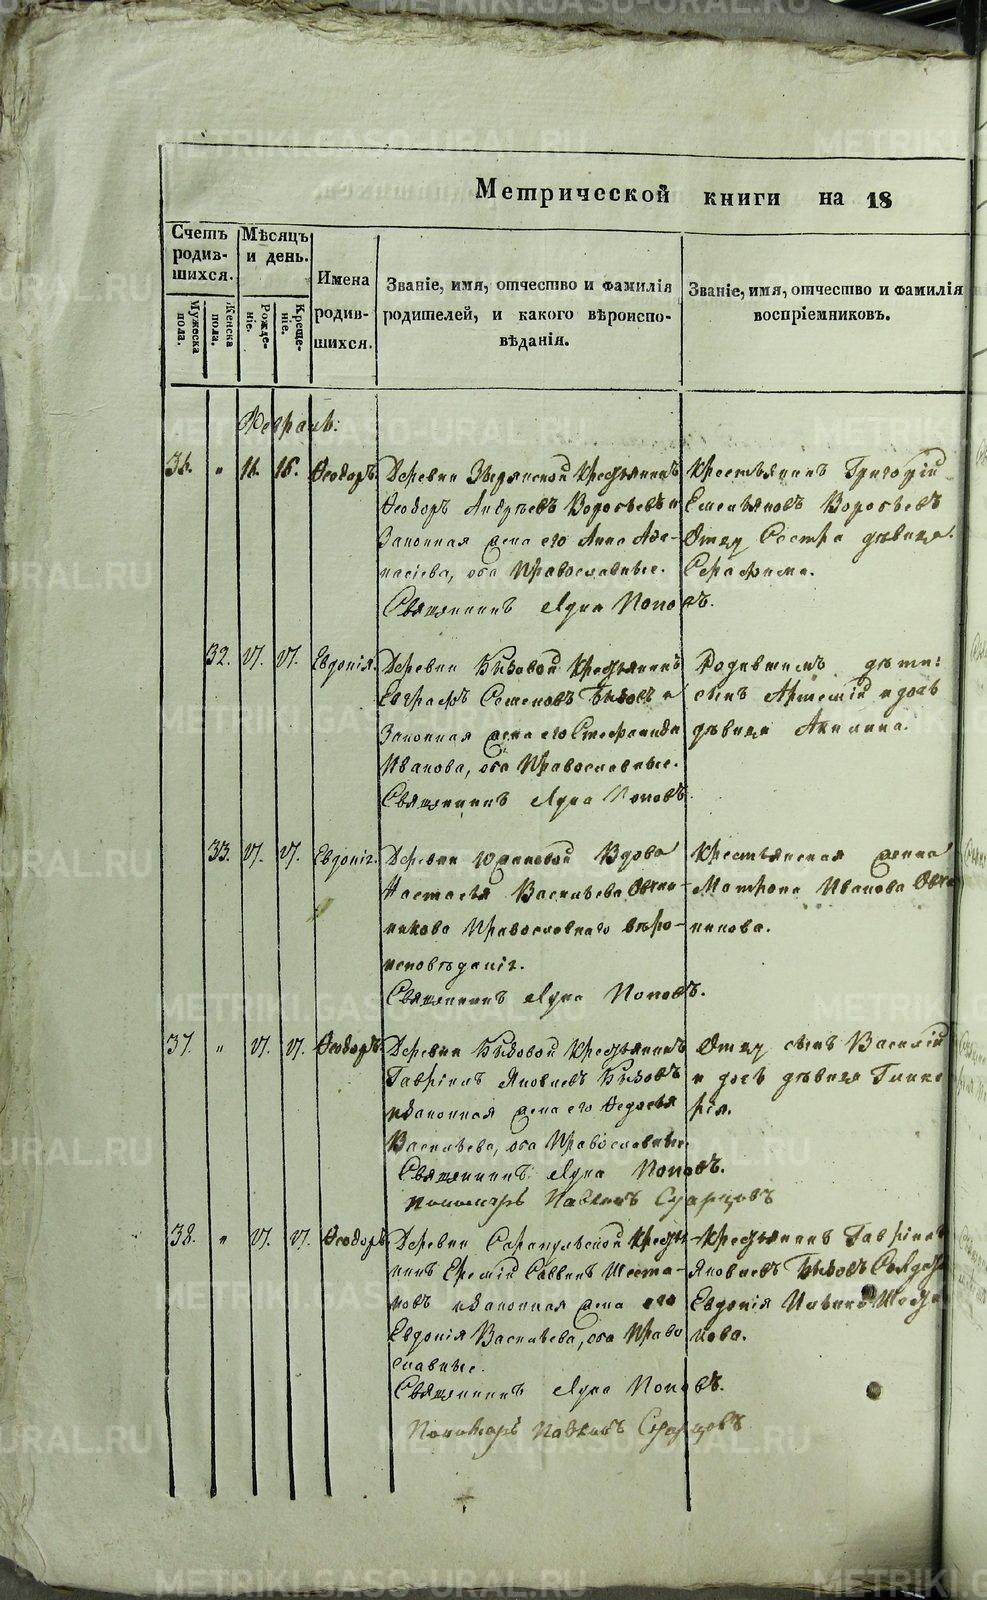 Метрической книги на 18
Счетъ родив-шихся.
Мѣсяцъ и день.
Имена родив-шихся.
Званіе, имя, отчество и фамилія
родителей, и какого вѣроиспо-
вѣданія.
Званіе, имя, отчество и фамилія
воспріемниковъ.
Мужеска пола.
Женска пола.
Рожде-ніе.
Креще-ніе.
Февраль.
36. " 16. 16. Ѳеодоръ.
Деревни Крестьянинъ
Ѳеодоръ Андреевъ Воробьевъ и
Законная жена его Анна Аѳа-
насіева, оба Православные.
Священникъ Лука Поповъ.
Крестьянинъ Григорій
Емельяновъ Воробьевъ
Отцу Сестра дѣвица
Серафима.
32. 17. 17. Евдокія.
Деревни Быковой Крестьянинъ
Евграфъ Семеновъ Быковъ и
Законная жена его Стефанида
Иванова, оба Православные.
Священникъ Лука Поповъ.
Родившимъ дѣти:
сынъ Артемій и дочь
дѣвица Акилина.
33. 17. 17. Евдокія.
Деревни Вдова
Настасья Васильева Овчин-
никова Православнаго вѣро-
исповѣданія.
Священникъ Лука Поповъ.
Крестьянская жена
Матрона Иванова Овчин
никова.
37. " 17. 17. Ѳеодоръ.
Деревни Быковой Крестьянинъ
Гавріилъ Яковлевъ Быковъ
и Законная жена его Ѳедосья
Васильева, оба Православные.
Священникъ Лука Поповъ.
Пономарь Павелъ Старцовъ
Отцу сынъ Василій
и дочь дѣвица Глике
рія.
38. " 17. 17. Ѳеодоръ.
Деревни Сарапульской Кресть-
нинъ Еремій Саввинъ Шеста-
ковъ и Законная жена его
Евдокія Васильева, оба Право
славные.
Священникъ Лука Поповъ.
Пономарь Павелъ Старцовъ
Крестьянинъ Гавріилъ
Яковлевъ Быковъ
Евдокія Шеста
кова.
METRIKI.GASO-URAL.RU